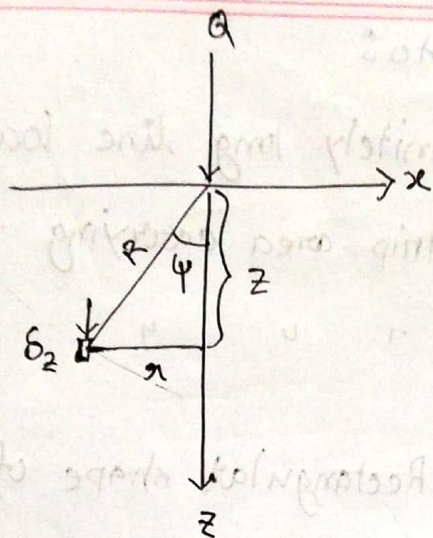 Q
x
R
ψ
z
σz
r
z